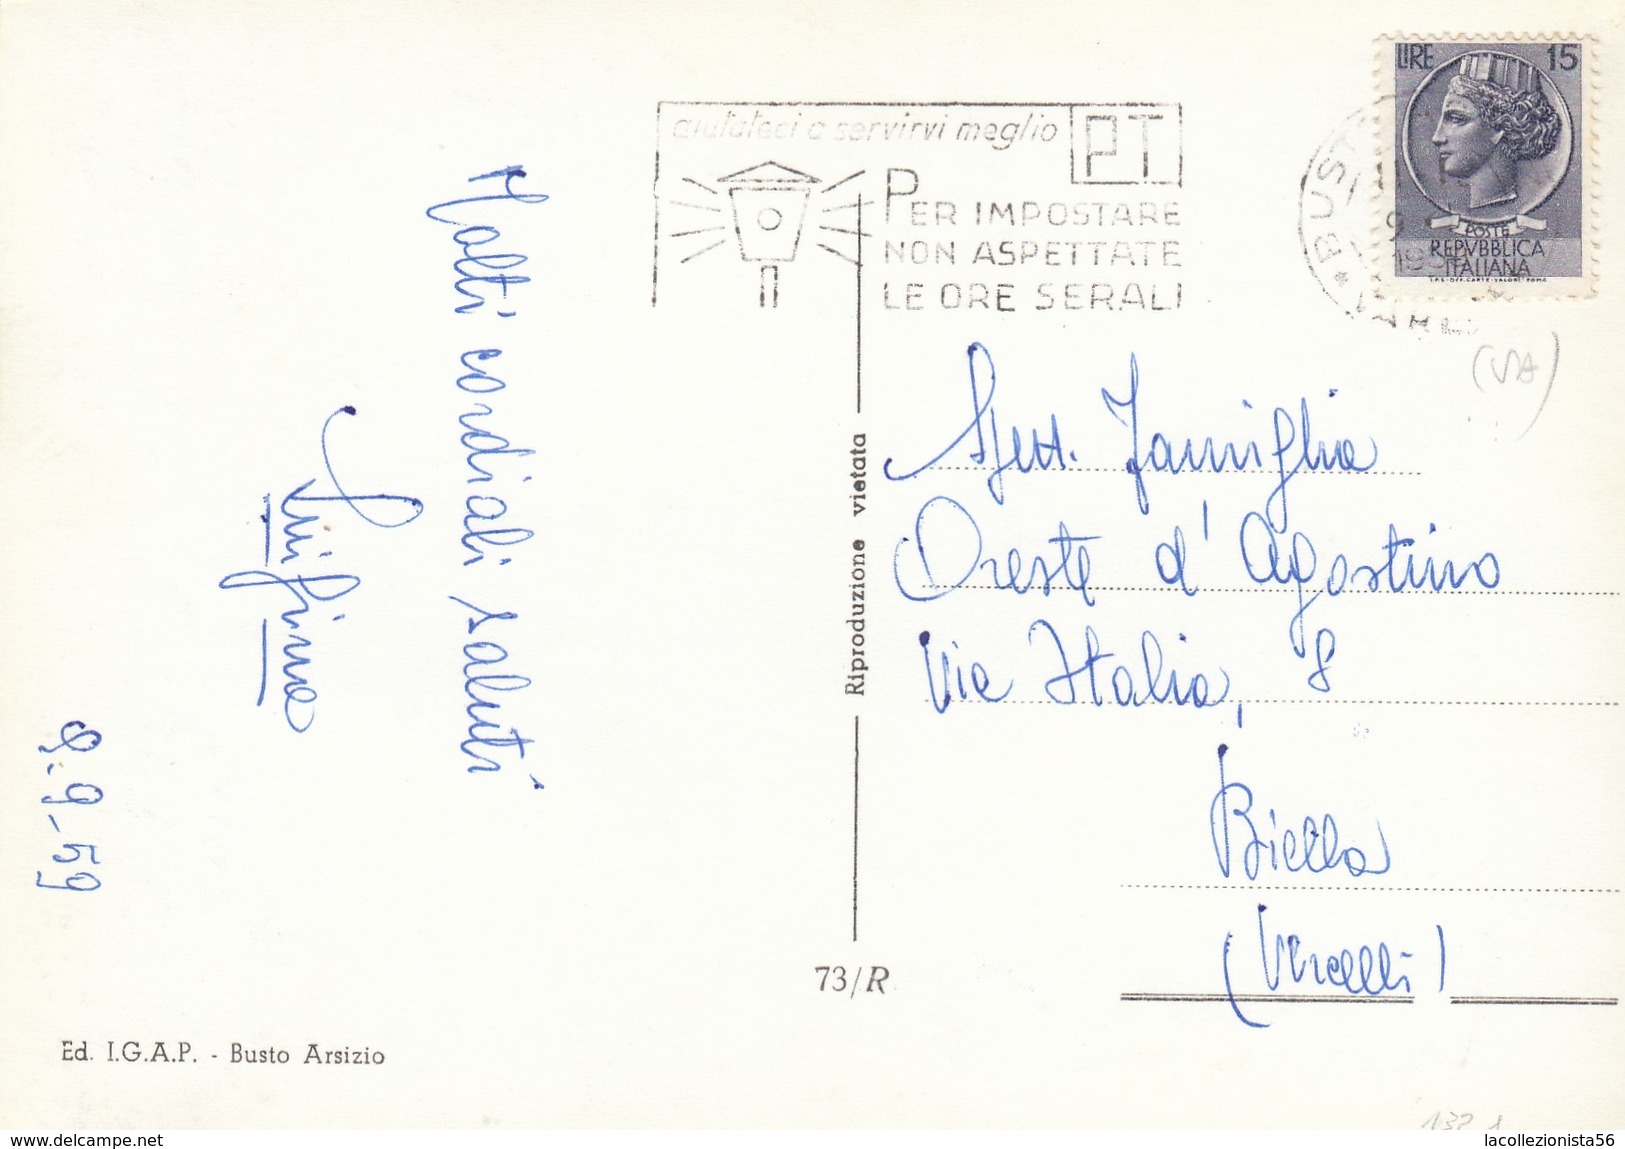 aiutateci a servirvi meglio
PT
PER IMPOSTARE
NON ASPETTATE
LE ORE SERALI
LIRE 15
POSTE
REPVBBLICA
ITALIANA
BUST
9
(VA)
Molti cordiali saluti
9.9-59
Riproduzione vietata
Gent. Famiglia
Oreste d'Agostino
Via Italia, 8
Biella
(Vercelli)
73/R
Ed. I.G.A.P. - Busto Arsizio
www.delcampe.net
lacollezionista56